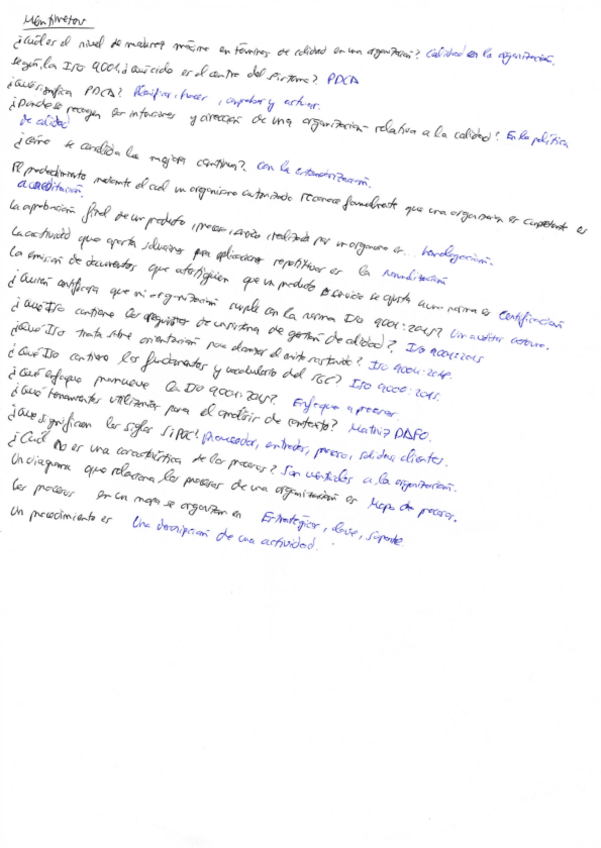 Mentimeter
¿Cuál es el nivel de madurez máximo en términos de calidad en una organización? Calidad en la organización.
Según la ISO 9001, ¿qué ciclo es el centro del sistema? PDCA
¿Qué significa PDCA? Planificar, hacer, comprobar y actuar.
¿Donde se recogen las intenciones y dirección de una organización relativa a la calidad? En la política
de calidad
¿Cómo se consolida la mejora continua? Con la estandarización.
El procedimiento mediante el cual un organismo autorizado reconoce formalmente que una organización es competente es
acreditación.
La aprobación final de un producto, proceso, servicio, realizada por un organismo es... homologación.
La actividad que aporta soluciones para aplicaciones repetitivas es la Normalización
La emisión de documentos que atestigüen que un producto o servicio se ajusta a una norma es Certificación
¿Quién certificará que mi organización cumple con la norma ISO 9001:2015? Un auditor externo.
¿Qué ISO contiene los requisitos de un sistema de gestión de calidad? ISO 9001:2015
¿Qué ISO trata sobre orientación para alcanzar el éxito sostenido? ISO 9004:2018.
¿Qué ISO contiene los fundamentos y vocabulario del SGC? ISO 9000:2015.
¿Qué enfoque promueve la ISO 9001:2015? Enfoque a procesos.
¿Qué herramientas utilizarías para el análisis de contexto? Matriz DAFO.
¿Que significan las siglas SIPOC? Proveedor, entradas, proceso, salidas, clientes.
¿Cuál NO es una característica de los procesos? Son verticales a la organización.
Un diagrama que relaciona los procesos de una organización es Mapa de procesos.
Los procesos en un mapa se organizan en Estratégicos, clave, soporte.
Un procedimiento es Una descripción de una actividad.